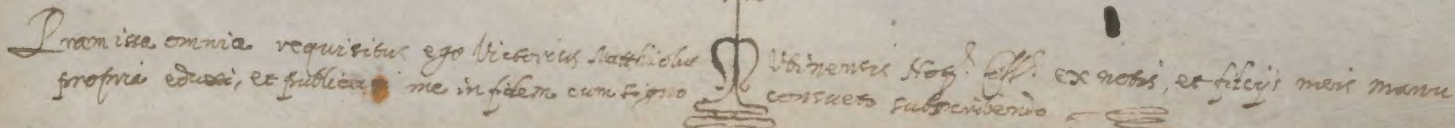 Præmissa omnia requisitus ego Victorius Matthiolus Utinensis Not. Coll. ex notis, et filcijs meis manu
propria eduxi, et publicavi me in fidem cum signo consueto subscribendo